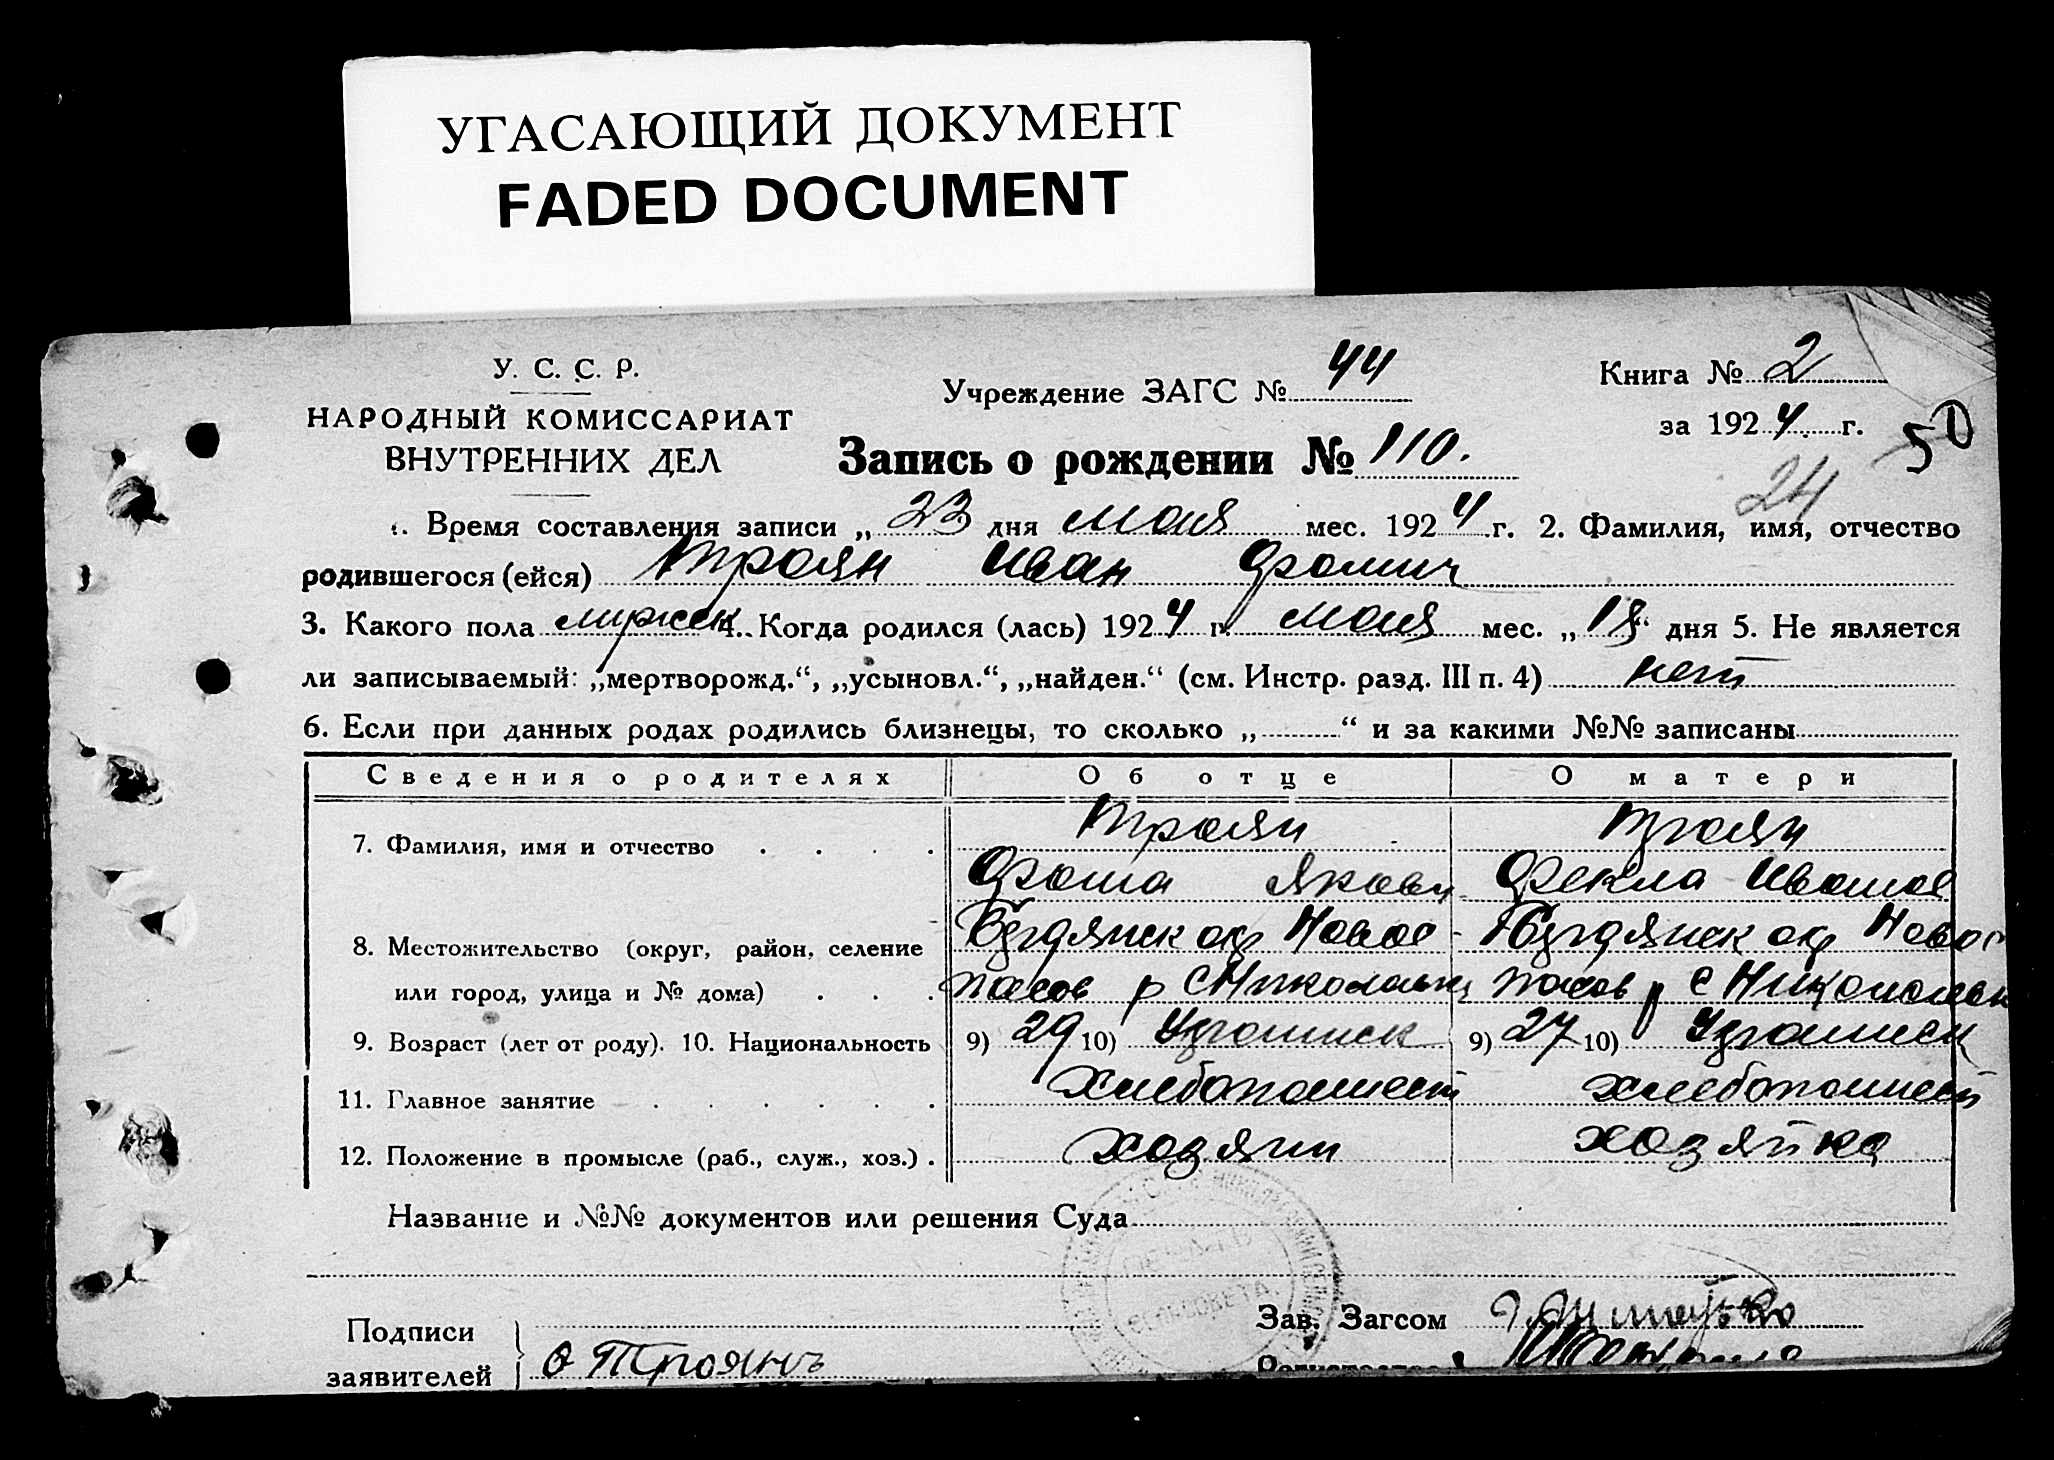 УГАСАЮЩИЙ ДОКУМЕНТ
FADED DOCUMENT
У. С. С. Р.
НАРОДНЫЙ КОМИССАРИАТ
ВНУТРЕННИХ ДЕЛ
Учреждение ЗАГС № 44
Книга № 2
за 1924 г.
50
Запись о рождении № 110.
24
1. Время составления записи „ 23 дня мая мес. 1924 г. 2. Фамилия, имя, отчество
родившегося (ейся) Троян Иван Фомич
3. Какого пола мужск 4. Когда родился (лась) 1924 г. мая мес. „ 18 “ дня 5. Не является
ли записываемый: „мертворожд.“, „усыновл.“, „найден.“ (см. Инстр. разд. III п. 4) нет
6. Если при данных родах родились близнецы, то сколько „ “ и за какими №№ записаны
Сведения о родителях Об отце О матери
7. Фамилия, имя и отчество Троян Троян
Фома Яковл Фекла Иванов
8. Местожительство (округ, район, селение Бердянск окр Ново Бердянск окр Ново
или город, улица и № дома) пасов р С Николаевц пасов р С
9. Возраст (лет от роду). 10. Национальность 9) 29 10) Украинск 9) 27 10) Украинск
11. Главное занятие хлебопашест хлебопашест
12. Положение в промысле (раб., служ., хоз.) хозяин хозяйка
Название и №№ документов или решения Суда
СЕЛЬСОВЕТА
Подписи
заявителей Ф Троянъ
Зав. Загсом